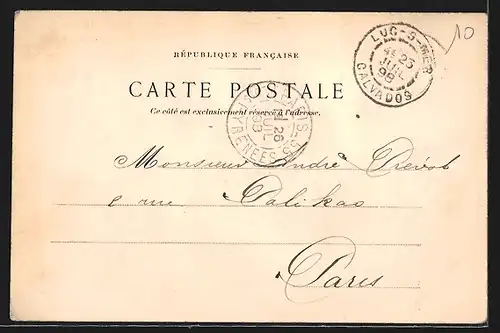 10
RÉPUBLIQUE FRANÇAISE
CARTE POSTALE
Ce côté est exclusivement réservé à l'adresse.
LUC-S-MER
25
JUIL
98
CALVADOS
PARIS
26
JUIL
98
PYRÉNÉES
Monsieur André Prevot
rue Palikao
Paris